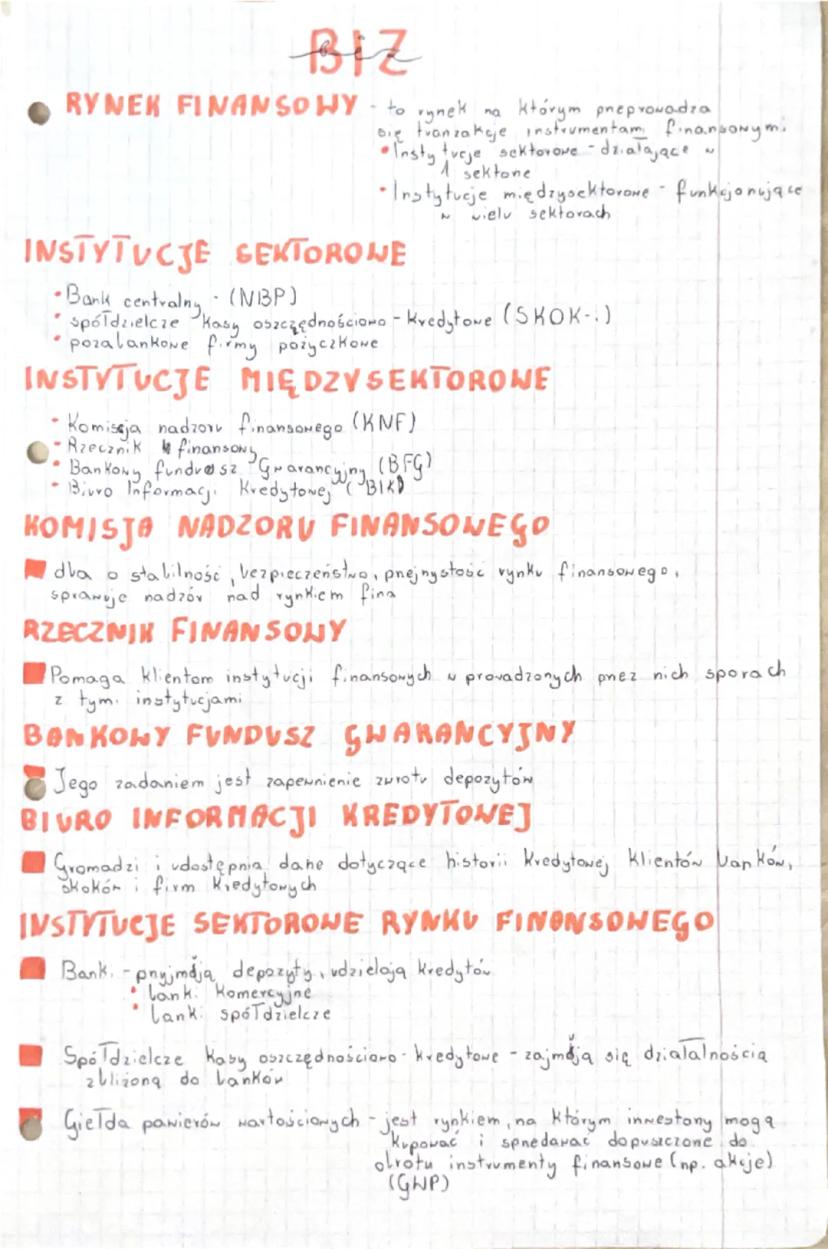 BIZ
biz
RYNEK FINANSOWY - to rynek na którym przeprowadza
się tranzakcje instrumentami finansowymi
• Instytucje sektorowe - działające w
1 sektorze
• Instytucje międzysektorowe - funkcjonujące
w wielu sektorach
INSTYTUCJE SEKTOROWE
• Bank centralny - (NBP)
• spółdzielcze kasy oszczędnościowo - kredytowe (SKOK-i)
• pozabankowe firmy pożyczkowe
INSTYTUCJE MIĘDZYSEKTOROWE
• Komisja nadzoru finansowego (KNF)
• Rzecznik finansowy
• Bankowy fundusz Gwarancyjny (BFG)
• Biuro Informacji Kredytowej (BIK)
KOMISJA NADZORU FINANSOWEGO
dba o stabilność, bezpieczeństwo, przejrzystość rynku finansowego,
sprawuje nadzór nad rynkiem fina
RZECZNIK FINANSOWY
Pomaga klientom instytucji finansowych w prowadzonych przez nich sporach
z tymi instytucjami
BANKOWY FUNDUSZ GWARANCYJNY
Jego zadaniem jest zapewnienie zwrotu depozytów
BIURO INFORMACJI KREDYTOWEJ
Gromadzi i udostępnia dane dotyczące historii kredytowej klientów banków,
skoków i firm kredytowych
INSTYTUCJE SEKTOROWE RYNKU FINANSOWEGO
Banki - przyjmują depozyty, udzielają kredytów
• banki komercyjne
• banki spółdzielcze
Spółdzielcze kasy oszczędnościowo - kredytowe - zajmują się działalnością
zbliżoną do banków
Giełda papierów wartościowych - jest rynkiem, na którym inwestorzy mogą
kupować i sprzedawać dopuszczone do
obrotu instrumenty finansowe (np. akcje)
(GWP)